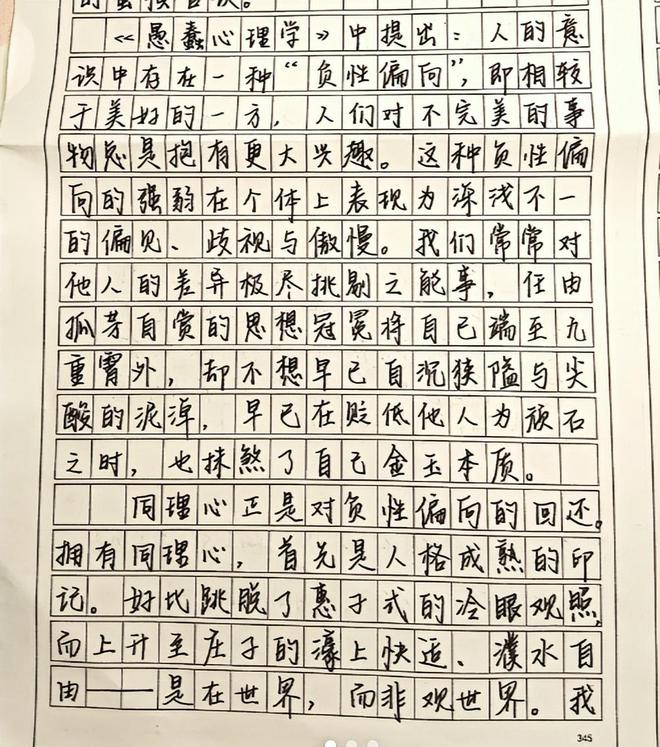 《愚蠢心理学》中提出：人的意
识中存在一种“负性偏向”，即相较
于美好的一方，人们对不完美的事
物总是抱有更大兴趣。这种负性偏
向的强弱在个体上表现为深浅不一
的偏见、歧视与傲慢。我们常常对
他人的差异极尽挑剔之能事，任由
孤芳自赏的思想冠冕将自己端至九
重霄外，却不想早已自沉狭隘与尖
酸的泥淖，早已在贬低他人为顽石
之时，也抹煞了自己金玉本质。
同理心正是对负性偏向的回还。
拥有同理心，首先是人格成熟的印
记。好比跳脱了惠子式的冷眼观照，
而上升至庄子的濠上快适、濮水自
由——是在世界，而非观世界。我
345